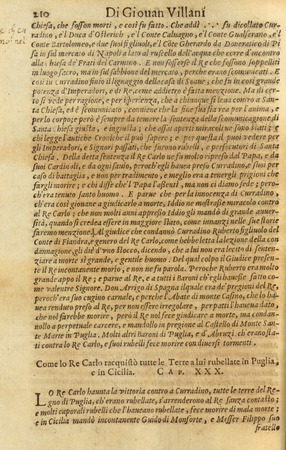 210 Di Giovan Villani
Chiesa, che fosson morti, e così fu fatto. Che addì .. fu dicollato Curra-
dino, e'l Duca d'Osterich, e'l Conte Calvagno, e'l Conte Gualferano, e'l
Conte Bartolomeo, e due suoi figliuoli, e'l Côte Gherardo da Doneratico di Pi
sa in sul mercato di Napoli a lato al ruscello dell'acqua che corre d'incontro
alla chiesa de' Frati del Carmino. E non sofferse il Re che fossono soppelliti
in luogo sacro, ma in sul sabbione del mercato, perché erano scomunicati. E
così in Curradino finìo il lignaggio della casa di Soave, che fu in così grande
potenzia d'Imperadori, e di Re, come addietro è fatta menzione. Ma di cer-
to si vede per ragione, e per isperienza, che a chiunque si leva contro a San-
ta Chiesa, ed è scomunicato, conviene che la fine sua sia rea per l'anima, e
per lo corpo; e però è sempre da temere la sentenzia della scomunicazione di
Santa Chiesa giusta, e ingiusta, che assai aperti miracoli ne sono stati; e
chi legge l'antiche Croniche il può sapere; e per questa il può vedere per
gli Imperadori, e Signori passati, che furono rubelli, e persecutori di Santa
Chiesa. Della detta sentenzia il Re Carlo ne fu molto ripreso dal Papa, e da
suoi Cardinali, e da ogni savio, perocch'egli havea preso Curradino, e suoi per
caso di battaglia, e non per tradimento, e meglio era a tenergli prigioni che
fargli morire; e chi disse che'l Papa l'assentì, ma non ci diamo fede; peroc-
ch'era tenuto santo huomo. E parve che per la innocenzia di Curradino,
ch'era così giovane a giudicarlo a morte, Iddio ne mostrasse miracolo contro
al Re Carlo; che non molti anni appresso Iddio gli mandò di grande avversi-
tà, quando si credea essere in maggiore stato, come innanzi nelle sue storie
faremo menzione. Al giudice che condannò Curradino Ruberto figliuolo del
Conte di Fiandra, e genero del Re Carlo, come hebbe letta la legione della con
dannagione, gli die d'uno stocco, dicendo, che a lui non era lecito di senten-
ziare a morte sì grande, e gentile huomo. Del qual colpo il Giudice presen-
te il Re incontanente morìo, e non ne fu parola. Peroché Ruberto era molto
grande appo il Re; e parve al Re, e a tutti i Baroni ch'egli havesse fatto co-
me valente Signore. Don Arrigo di Spagna il quale era de' pregioni del Re,
peroch'era suo cugino carnale, e perché l'Abate di monte Cascino, che lo ha-
vea renduto preso al Re, per non essere irregolare, per patti l'havea dato,
che nol farebbe morire, però il Re nol fece giudicare a morte, ma condan-
nollo a perpetuale carcere, e mandollo in pregione al Castello di Monte San-
te Marie in Puglia. Molti altri baroni di Puglia, e d'Abruzi, ch'erano sta-
ti contro lo Re Carlo, e suoi rubelli fece morire con diversi tormenti.
Come lo Re Carlo racquistò tutte le Terre a lui rubellate in Puglia,
e in Cicilia. CAP. XXX.
LO RE Carlo havuta la vittoria contro a Curradino, tutte le terre del Re-
gno di Puglia, ch'erano rubellate, s'arrenderono al Re sanza contasto;
e molti caporali rubelli che l'haveano rubellate, fece morire di mala morte;
e in Cicilia mandò incontanente Guido di Monforte, e Messer Filippo suo
fratello